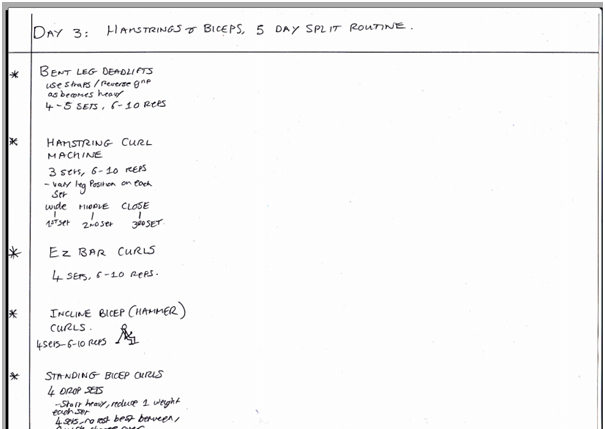 DAY 3: HAMSTRINGS & BICEPS, 5 DAY SPLIT ROUTINE.
* BENT LEG DEADLIFTS
use straps/reverse grip
as becomes heavy
4-5 SETS, 6-10 REPS
* HAMSTRING CURL
MACHINE
3 sets, 6-10 REPS
- vary leg position on each
set
wide MIDDLE CLOSE
1st set 2nd set 3rd SET.
* EZ BAR CURLS
4 SETS, 6-10 REPS.
* INCLINE BICEP (HAMMER)
CURLS.
4 SETS-6-10 REPS
* STANDING BICEP CURLS
4 DROP SETS
- Start heavy, reduce 1 weight
each set
4 sets, no rest between,